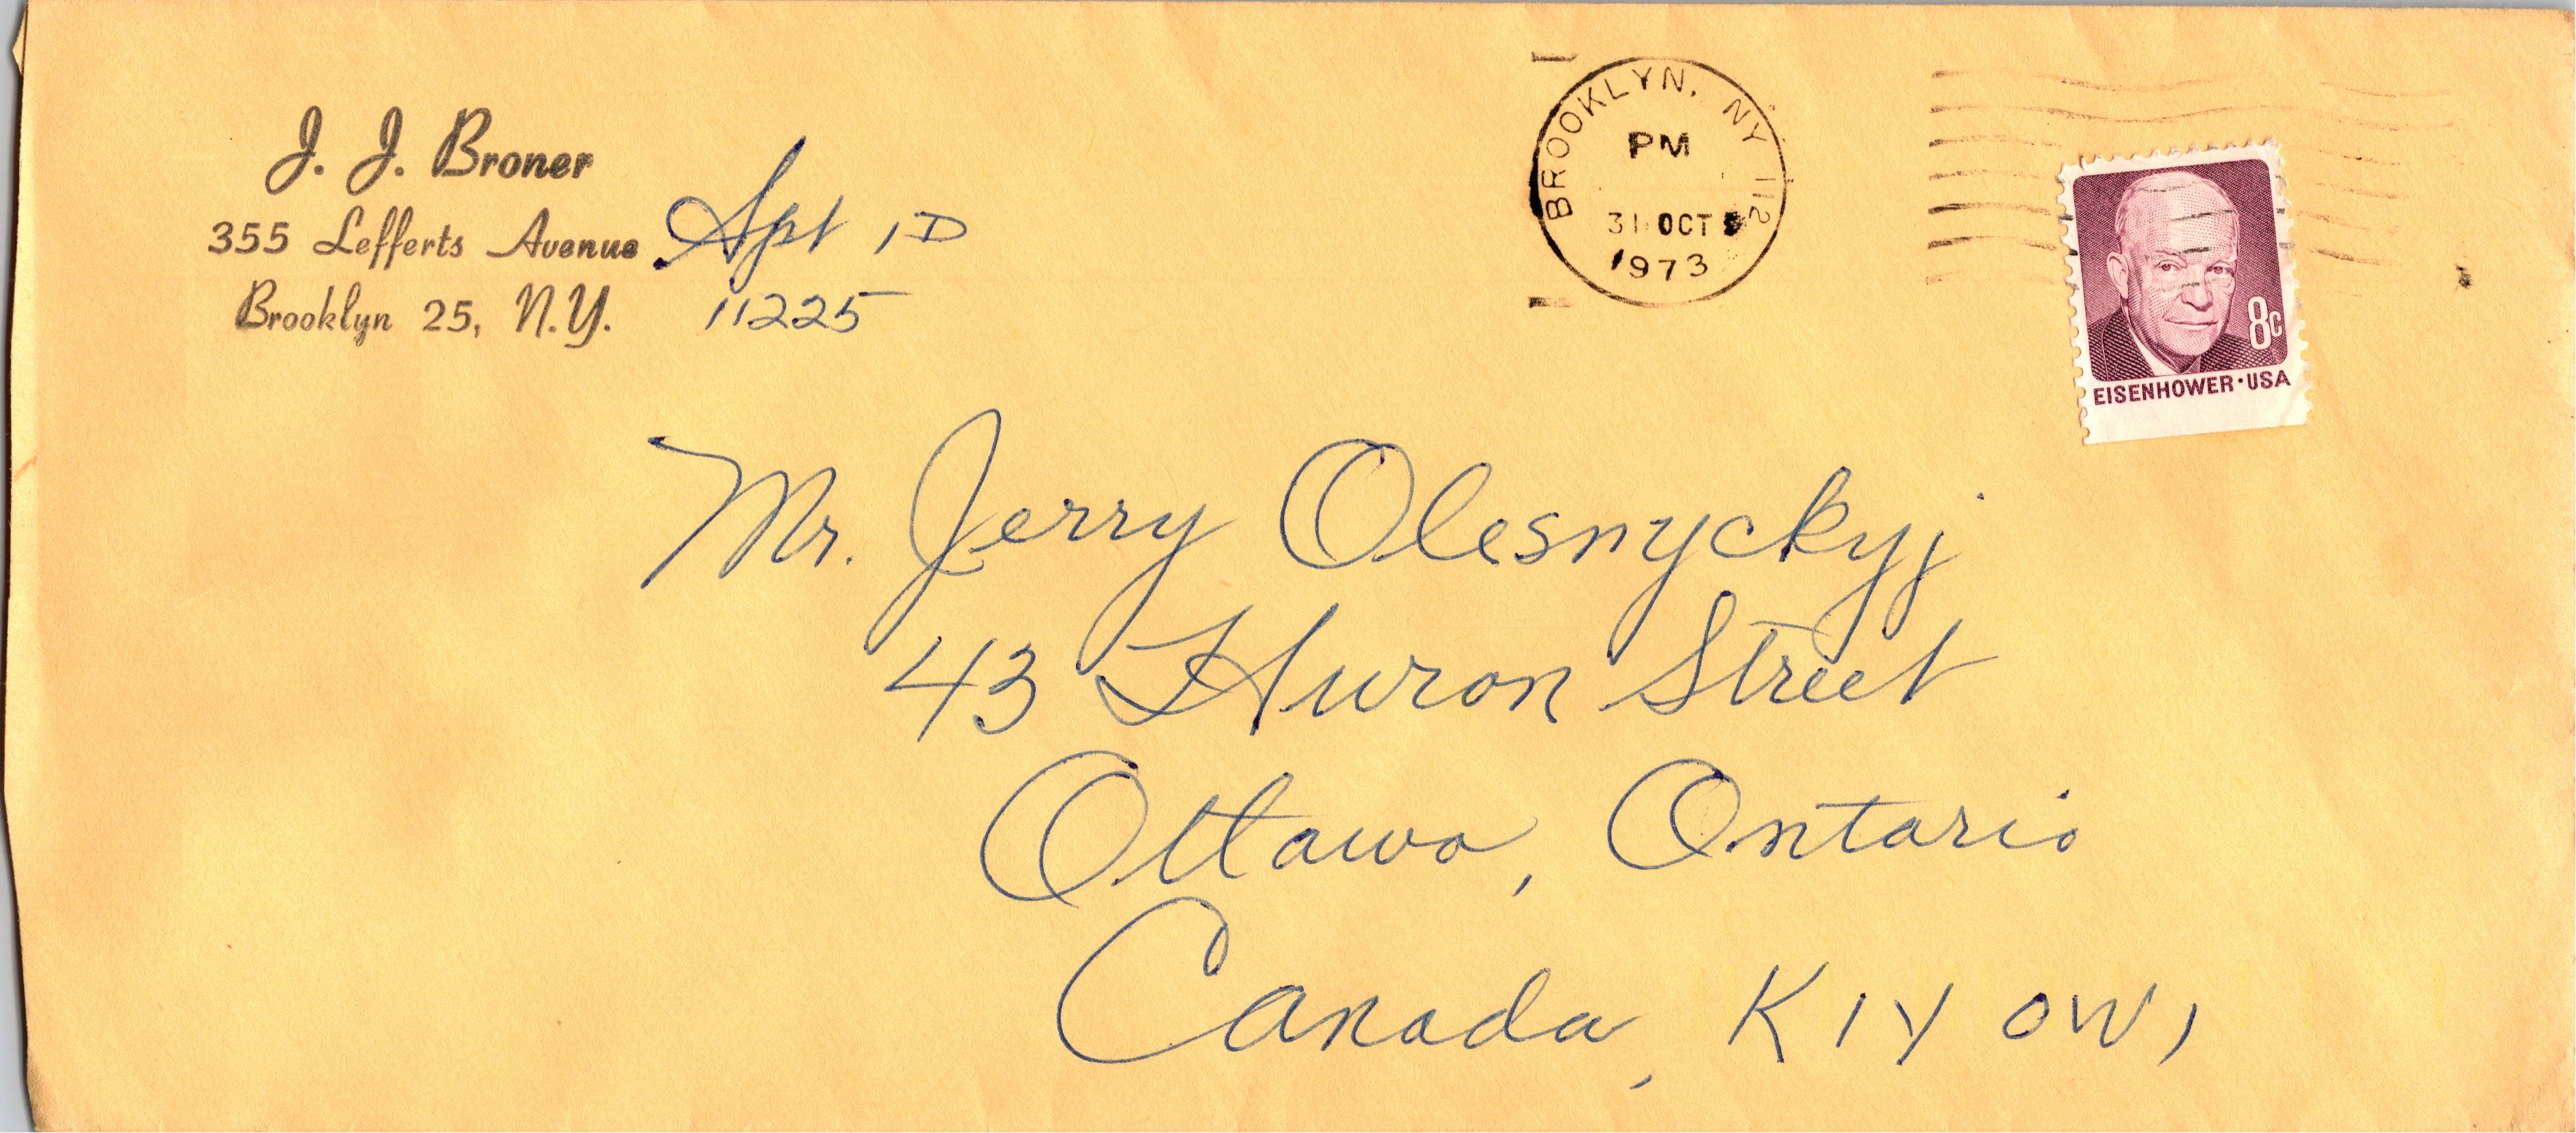 J. J. Broner
355 Lefferts Avenue Apt 1D
Brooklyn 25, N.Y. 11225
BROOKLYN, NY 112
PM
31 OCT
1973
8c
EISENHOWER·USA
Mr. Jerry Olesnyckyj
43 Huron Street
Ottawa, Ontario
Canada, K1Y 0W1